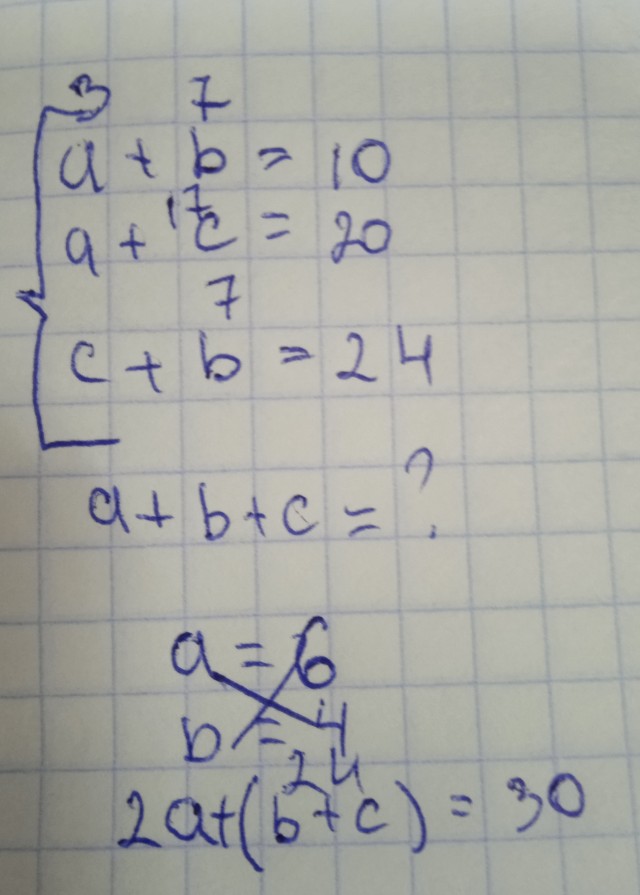 3 7
a + b = 10
17
a + c = 20
7
c + b = 24
a + b + c = ?
a = 6
b = 4
24
2a+(b+c) = 30